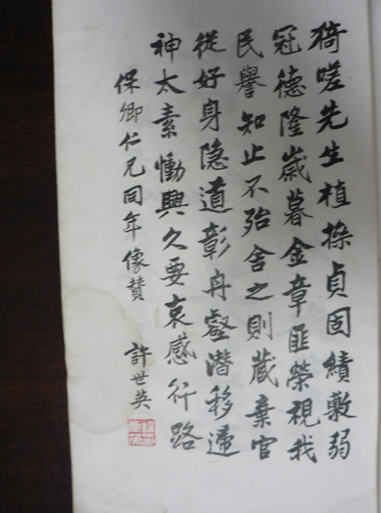 猗嗟先生植操貞固績敷弱
冠德隆歲暮金章匪榮視我
民譽知止不殆舍之則藏棄官
從好身隐道彰舟壑潛移遺
神太素慟興久要哀感行路
保卿仁兄同年像贊
許世英